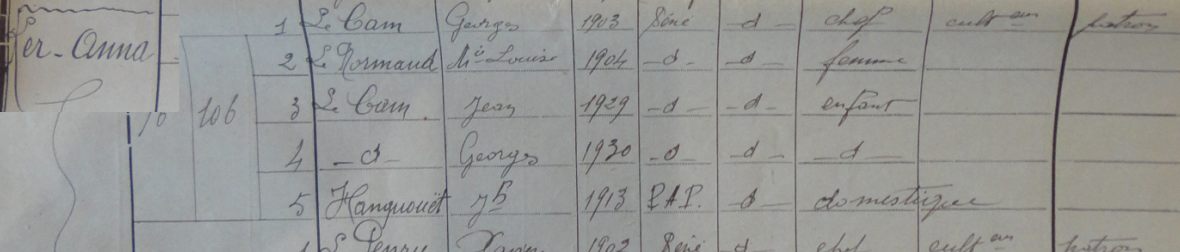 Ker-Anna
1 Le Cam Georges 1903 Séné -d- chef cult eur patron
2 Le Normand Mie Louise 1904 -d- -d- femme
106 3 Le Cam Jean 1929 -d- -d- enfant
4 -d- Georges 1930 -d- -d- -d-
5 Hanguouët Jh 1913 P.A.P. d domestique
1902 Séné -d- chef cult eur patron